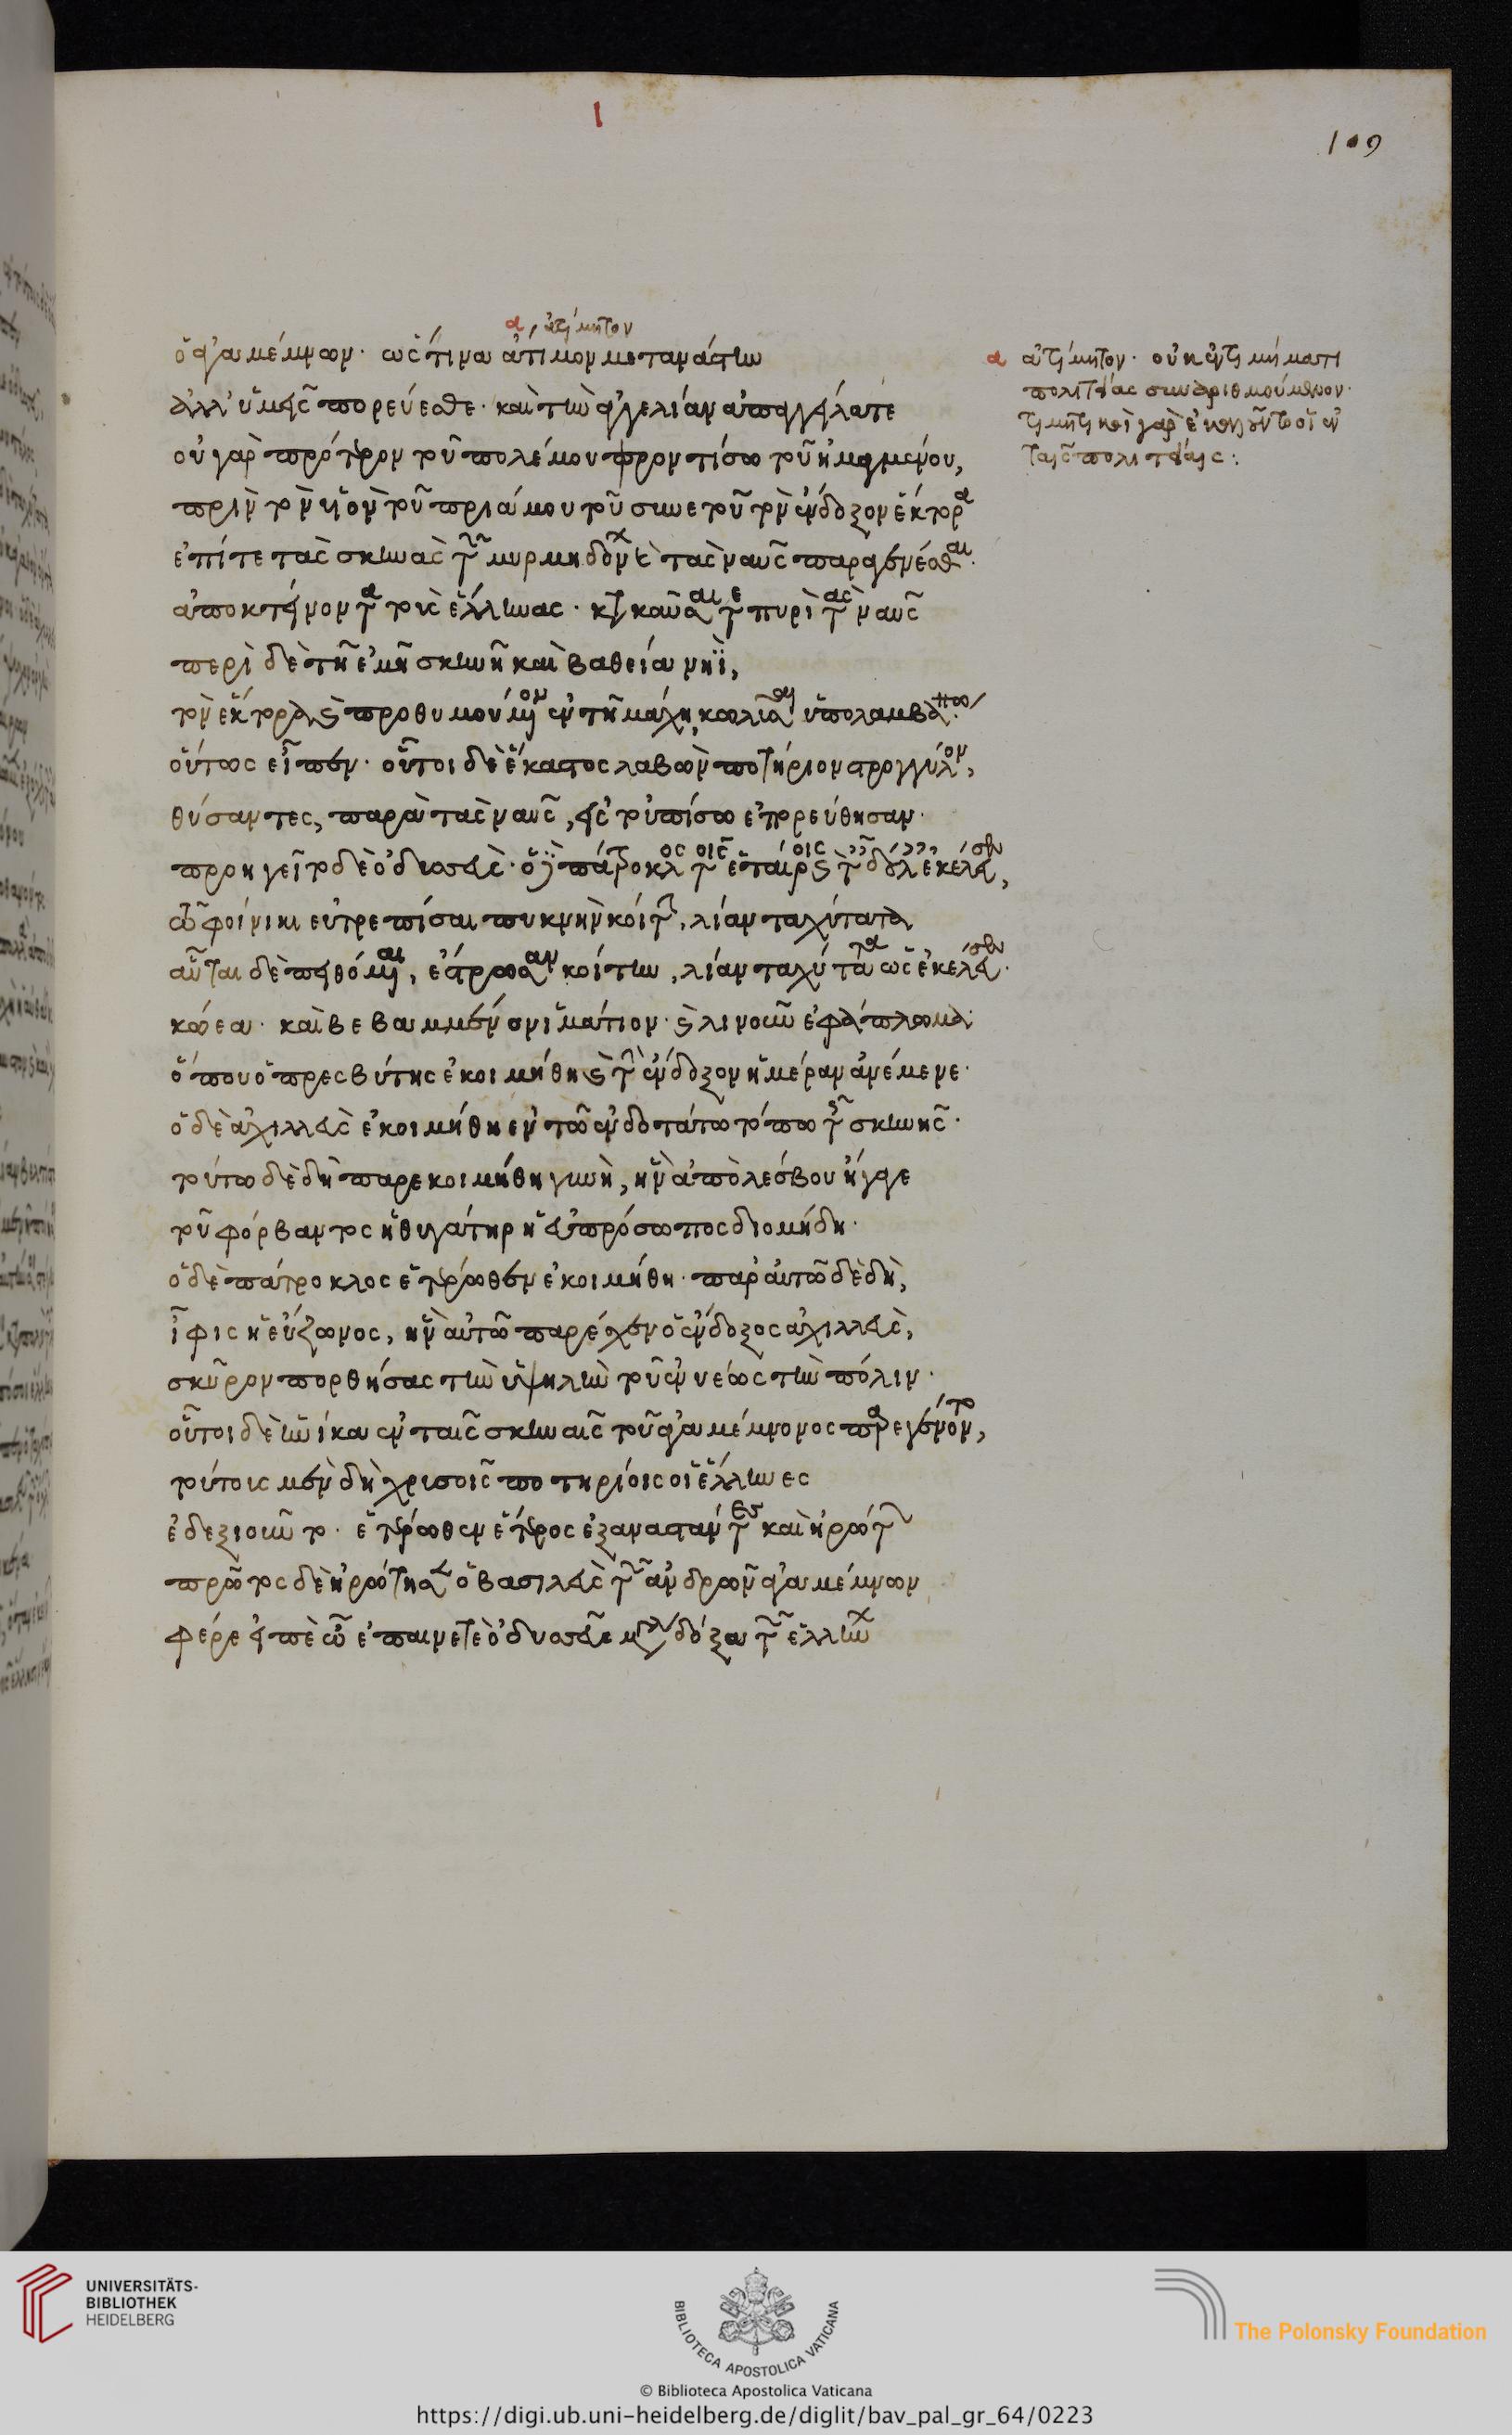 109
α, ἀτίμητον
ὁ ἀγαμέμνων· ὥς τινα ἄτιμον μετανάστην
ἀλλ' ὑμεῖς πορεύεσθε· καὶ τὴν ἀγγελίαν ἀπαγγείλατε
οὐ γὰρ πρότερον τοῦ πολέμου φροντίσω τοῦ ἡμαγμένου,
πρὶν τὸν υἱὸν τοῦ πριάμου τοῦ συνετοῦ τὸν ἔνδοξον ἕκτορα
ἐπί τε τὰς σκηνὰς τῶν μυρμηδόνων καὶ τὰς ναῦς παραγενέσθαι·
ἀποκτείνοντα τοὺς ἕλληνας· κατακαῦσαι τε πυρὶ τὰς ναῦς
περὶ δὲ τῆ ἐμῆ σκηνῆ καὶ βαθεία νηῒ,
τὸν ἕκτορα καὶ προθυμούμενον ἐν τῆ μάχη, ὑπολαμβάνω
οὕτως εἶπεν· οὗτοι δὲ ἕκαστος λαβὼν ποτήριον στρογγύλον,
θύσαντες, παρὰ τὰς ναῦς, εἰς τοὐπίσω ἐπορεύθησαν·
προηγεῖτο δὲ ὁ ὀδυσσεὺς· ὁ δὲ πάτροκλος τοῖς ἑταίροις καὶ ταῖς δούλαις ἐκέλευσεν,
τῶ φοίνικι εὐτρεπίσαι πυκνὴν κοίτην, λίαν ταχύτατα
αὗται δὲ πειθόμεναι, ἔστρωσαν κοίτην, λίαν ταχύτατα ὡς ἐκέλευσεν·
κώεα· καὶ βεβαμμένον ἱμάτιον· καὶ λινοῦν ἐφάπλωμα·
ὅπου ὁ πρεσβύτης ἐκοιμήθη καὶ τὴν ἔνδοξον ἡμέραν ἀνέμενε·
ὁ δὲ ἀχιλλεὺς ἐκοιμήθη ἐν τῶ ἐνδοτάτω τόπω τῆς σκηνῆς·
τούτω δὲ δὴ παρεκοιμήθη γυνὴ, ἣν ἀπὸ λέσβου ἤγαγε
τοῦ φόρβαντος ἡ θυγάτηρ ἡ εὐπρόσωπος διομήδη·
ὁ δὲ πάτροκλος ἑτέρωθεν ἐκοιμήθη· παρ' αὐτῶ δὲ δὴ,
ἶφις ἡ εὔζωνος, ἣν αὐτῶ παρέσχεν ὁ ἔνδοξος ἀχιλλεὺς,
σκῦρον πορθήσας τὴν ὑψηλὴν τοῦ ἐνυέως τὴν πόλιν·
οὗτοι δὲ ἡνίκα ἐν ταῖς σκηναῖς τοῦ ἀγαμέμνονος παρεγένοντο,
τούτοις μὲν δὴ χρυσοῖς ποτηρίοις οἱ ἕλληνες
ἐδεξιοῦντο· ἑτέρωθεν ἕτερος ἐξαναστάντες καὶ ἠρώτων
πρῶτος δὲ ἠρώτησεν ὁ βασιλεὺς τῶν ἀνδρῶν ἀγαμέμνων
φέρε εἰπὲ ὦ ἐπαινετὲ ὀδυσσεῦ μεγάλη δόξα τῶν ἑλλήνων
α ἀτίμητον· οὐκ ἐν τιμήματι
πολιτείας συναριθμούμενον·
τιμητικοὶ γὰρ ἐκαλοῦντο οἱ ἐν
ταῖς πολιτείαις:
UNIVERSITÄTS-
BIBLIOTHEK
HEIDELBERG
BIBLIOTECA APOSTOLICA VATICANA
The Polonsky Foundation
© Biblioteca Apostolica Vaticana
https://digi.ub.uni-heidelberg.de/diglit/bav_pal_gr_64/0223